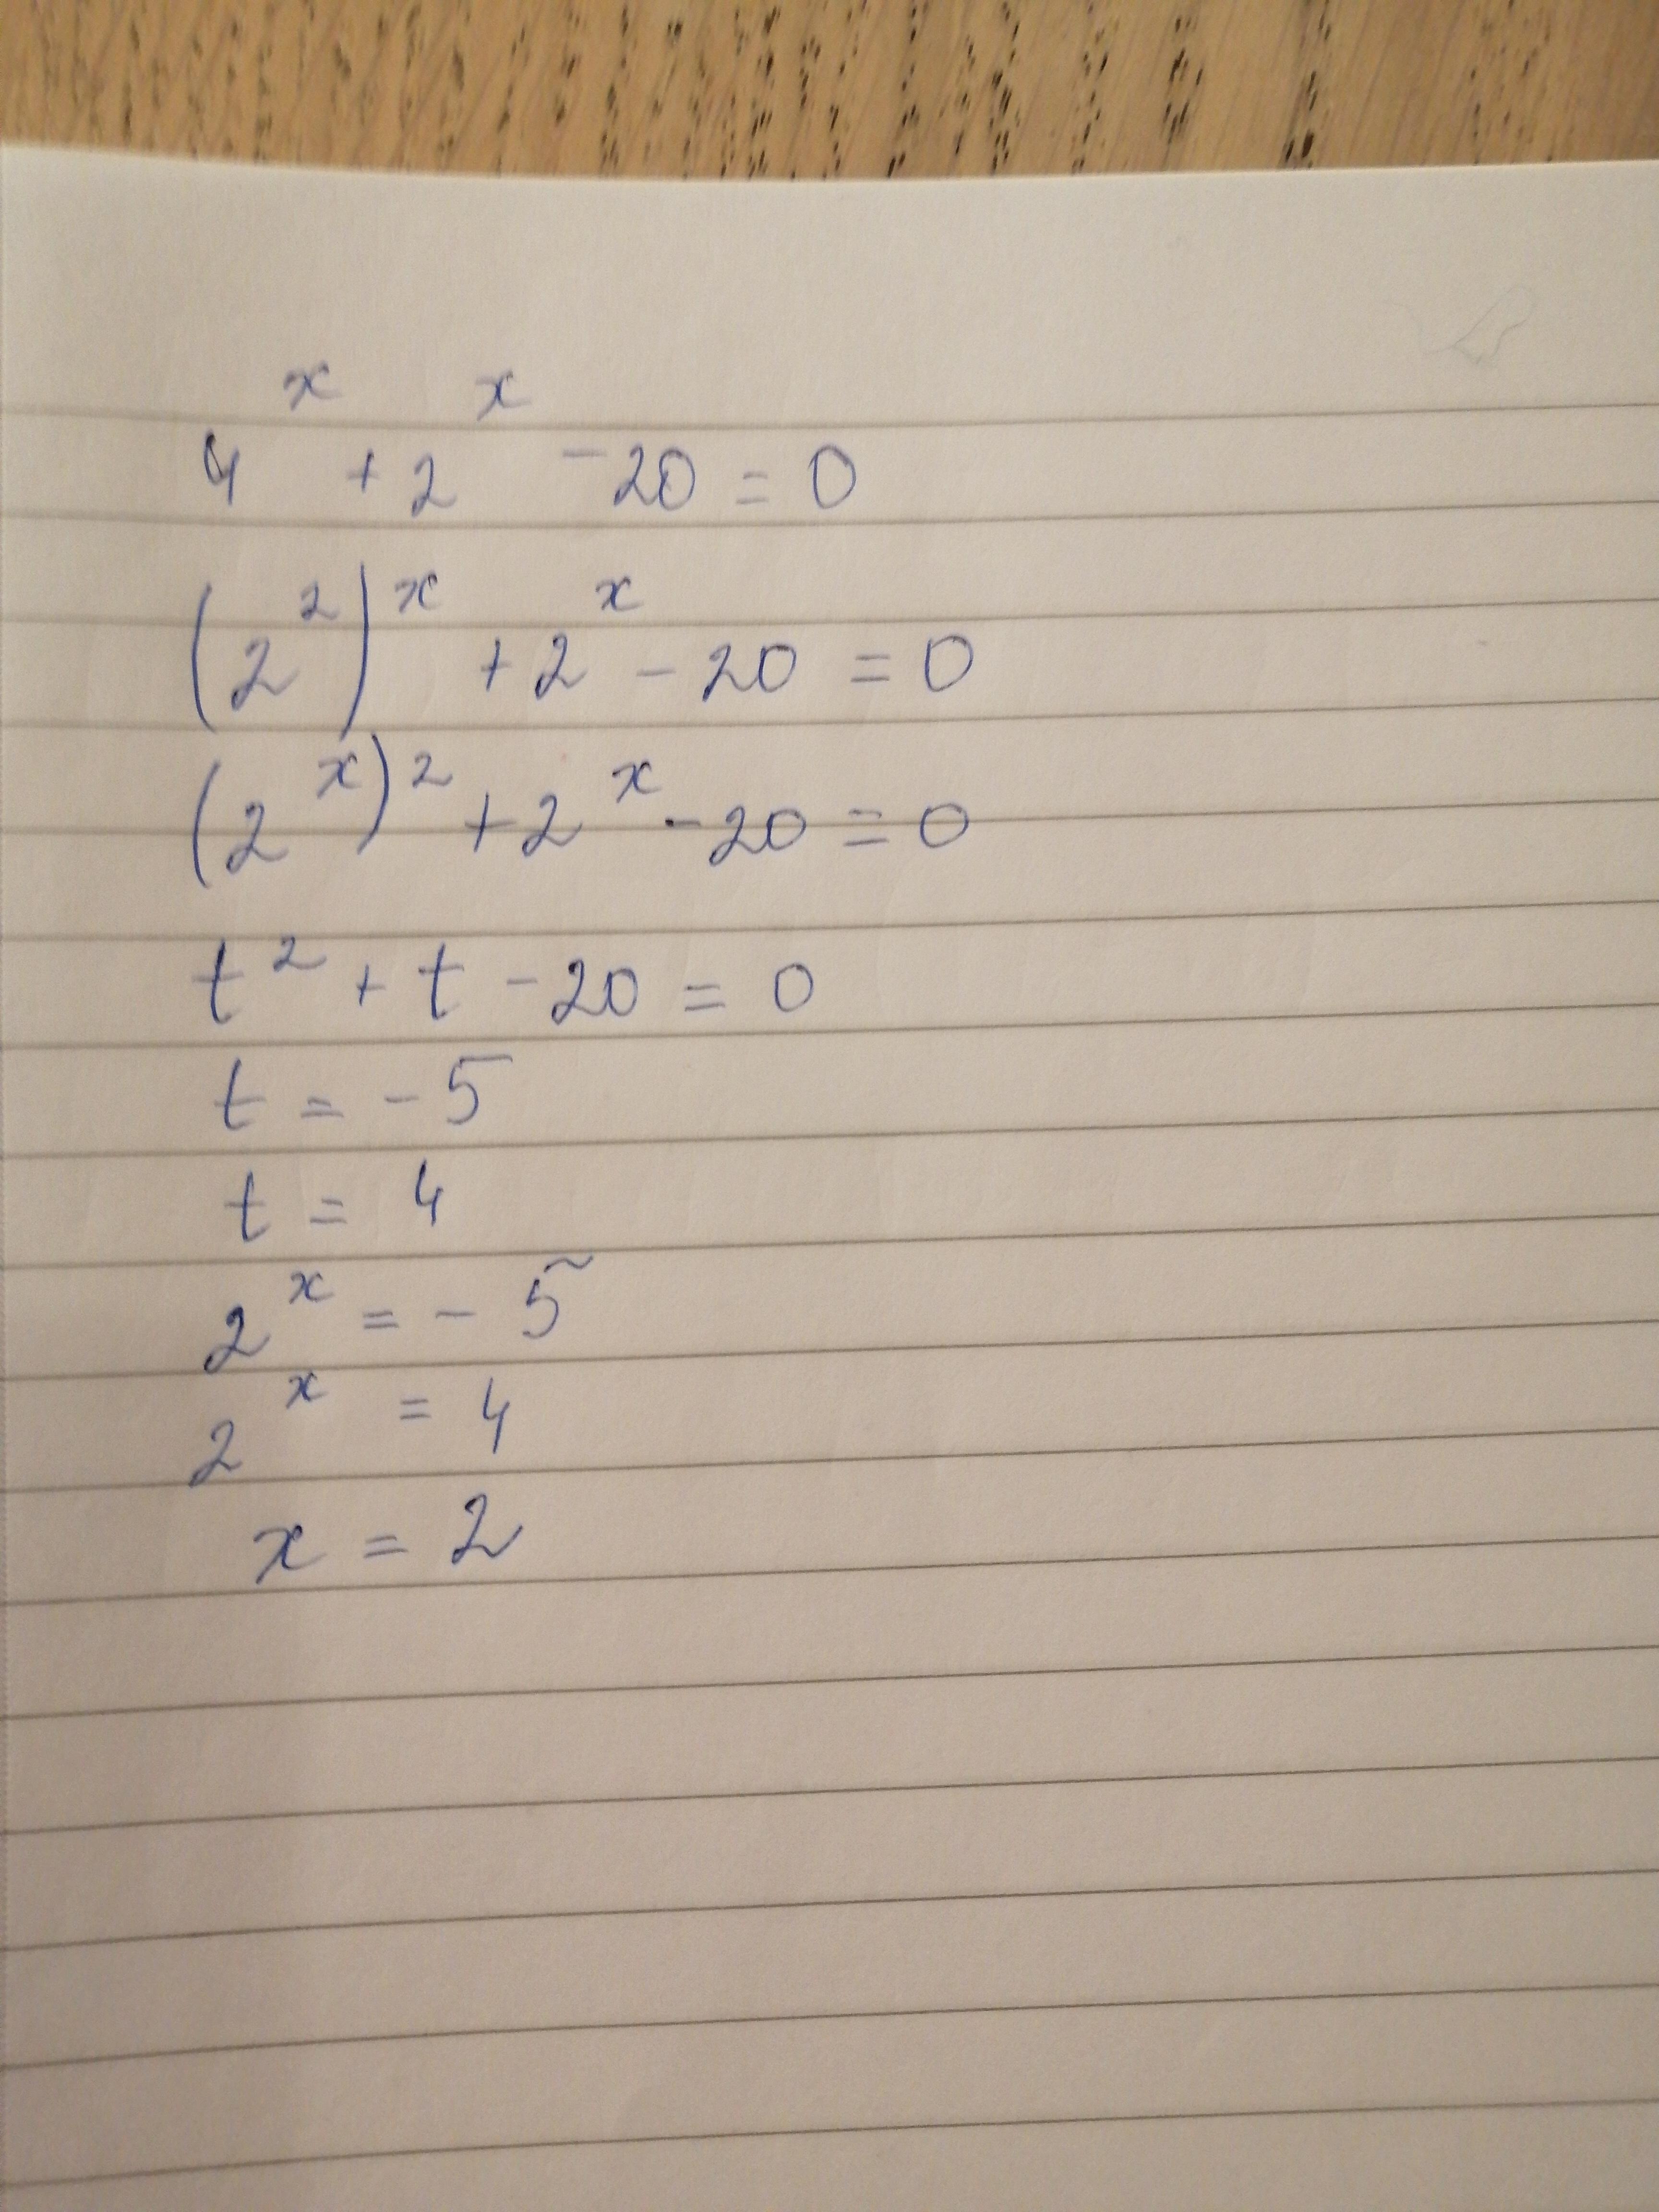 4^x + 2^x - 20 = 0
(2^2)^x + 2^x - 20 = 0
(2^x)^2 + 2^x - 20 = 0
t^2 + t - 20 = 0
t = - 5
t = 4
2^x = - 5
2^x = 4
x = 2